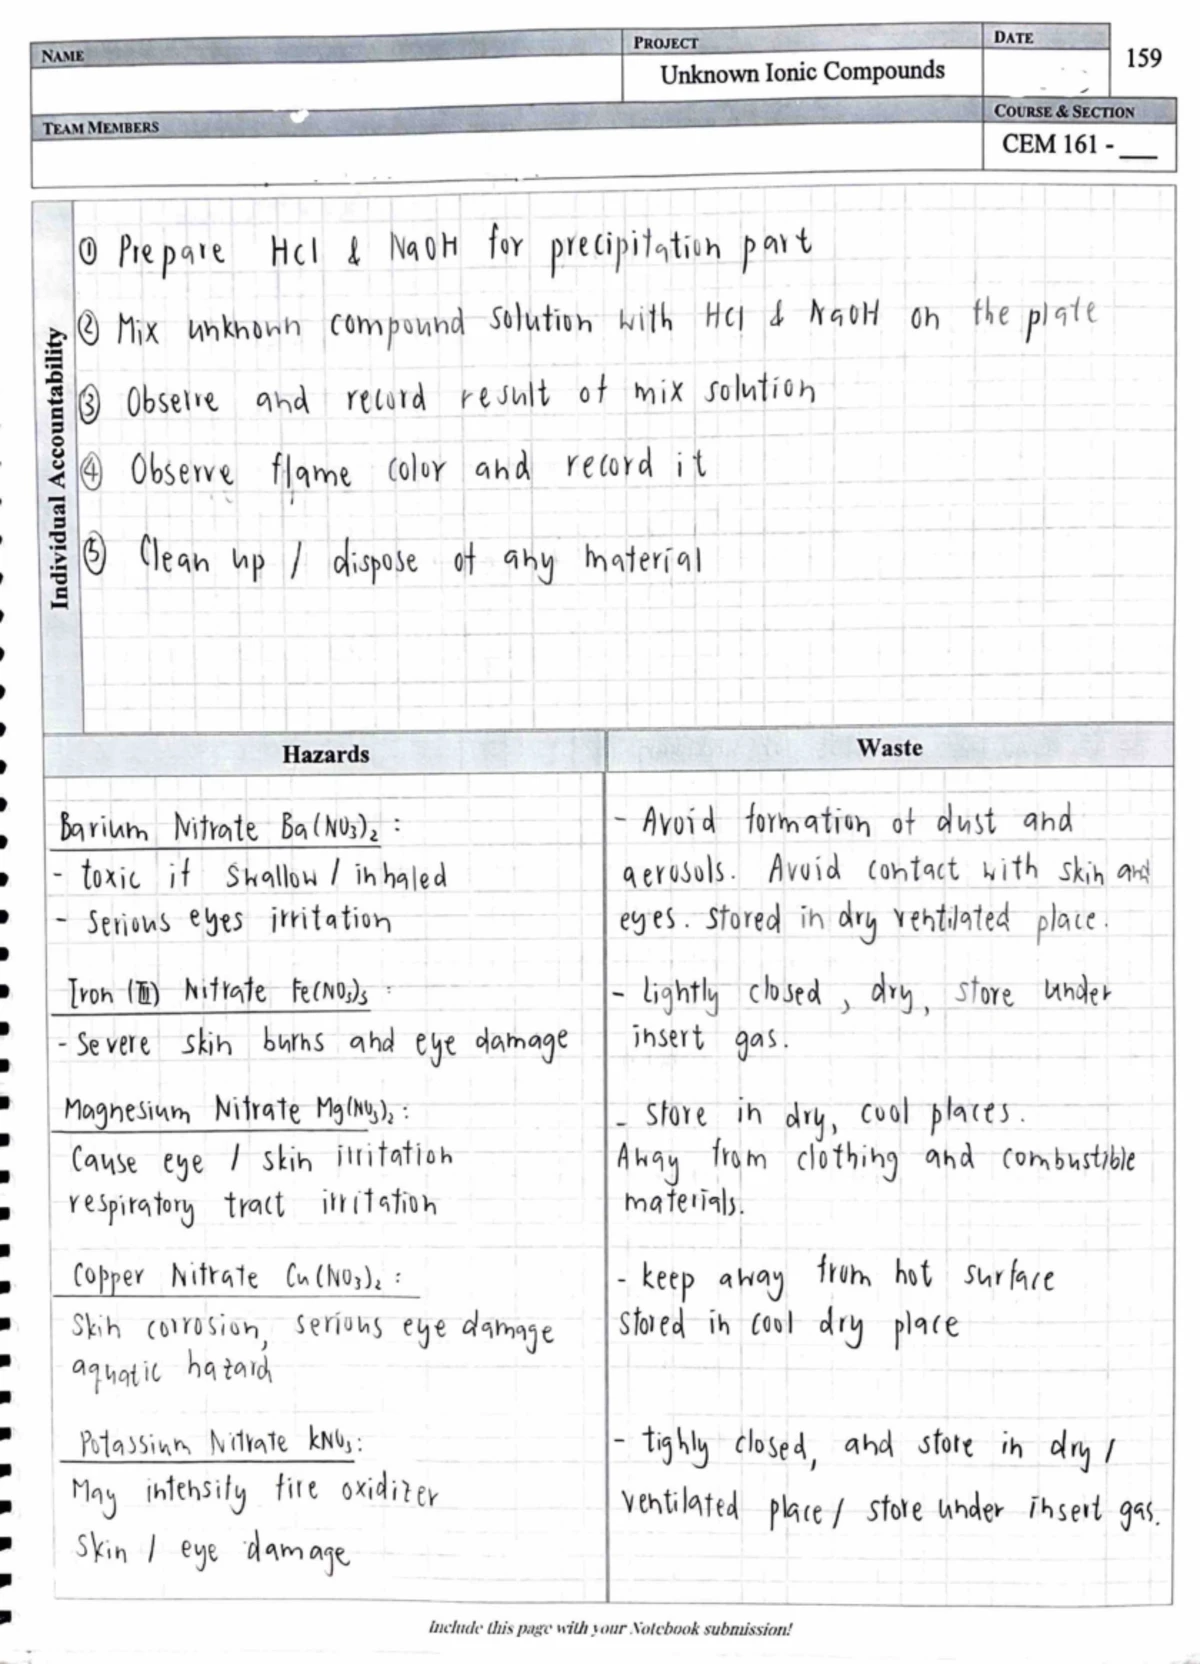 NAME
PROJECT
DATE
159
Unknown Ionic Compounds
TEAM MEMBERS
COURSE & SECTION
CEM 161 - ___
Individual Accountability
① Prepare HCl & NaOH for precipitation part
② Mix unknown compound solution with HCl & NaOH on the plate
③ Observe and record result of mix solution
④ Observe flame color and record it
⑤ Clean up / dispose of any material
Hazards
Waste
Barium Nitrate Ba(NO3)2 :
- toxic if swallow / inhaled
- serious eyes irritation
- Avoid formation of dust and
aerosols. Avoid contact with skin and
eyes. stored in dry ventilated place.
Iron (III) Nitrate Fe(NO3)3 :
- Severe skin burns and eye damage
- lightly closed, dry, store under
insert gas.
Magnesium Nitrate Mg(NO3)2 :
Cause eye / skin irritation
respiratory tract irritation
- store in dry, cool places.
Away from clothing and combustible
materials.
Copper Nitrate Cu(NO3)2 :
Skin corrosion, serious eye damage
aquatic hazard
- keep away from hot surface
stored in cool dry place
Potassium Nitrate KNO3 :
May intensity fire oxidizer
Skin / eye damage
- tighly closed, and store in dry /
ventilated place / store under insert gas.
Include this page with your Notebook submission!